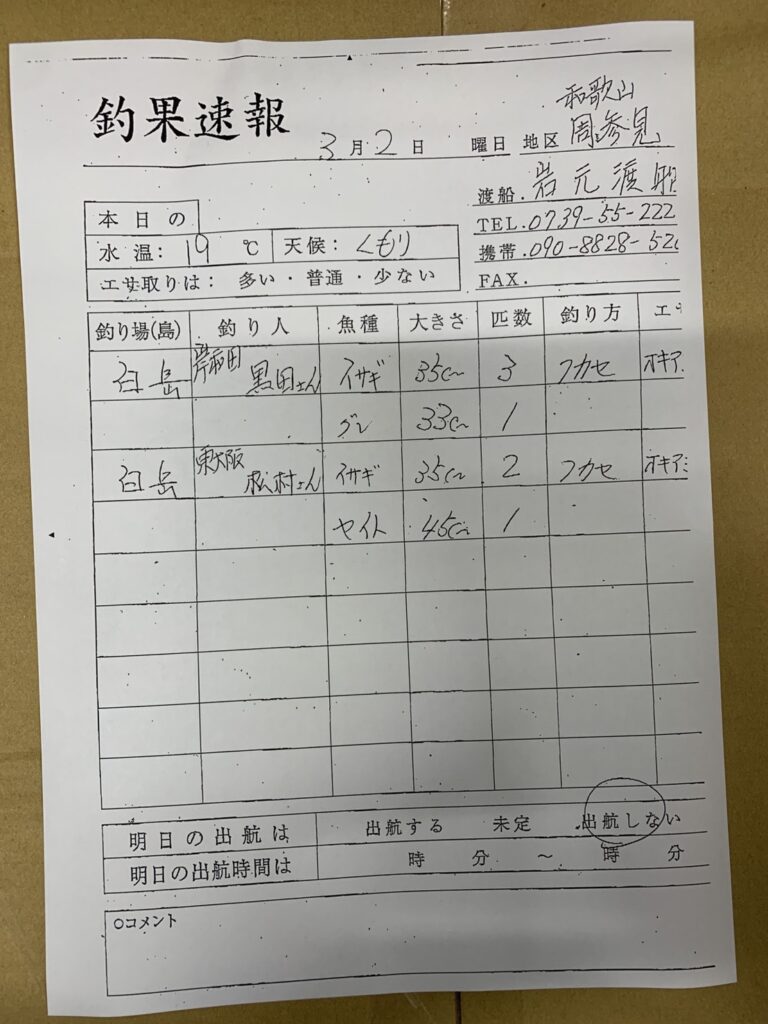 釣果速報
3月2日 曜日 地区 和歌山 周参見
渡船. 岩元渡船
TEL. 0739-55-222
携帯. 090-8828-52
FAX.
本日の
水温: 19 ℃ 天候: くもり
エサ取りは: 多い・普通・少ない
釣り場(島) 釣り人 魚種 大きさ 匹数 釣り方 エ
白岳 岸和田 黒田さん イサギ 35cm 3 フカセ オキア
グレ 33cm 1
白岳 東大阪 松村さん イサギ 35cm 2 フカセ オキアミ
セイト 45cm 1
明日の出航は 出航する 未定 出航しない
明日の出航時間は 時 分 ～ 時 分
○コメント